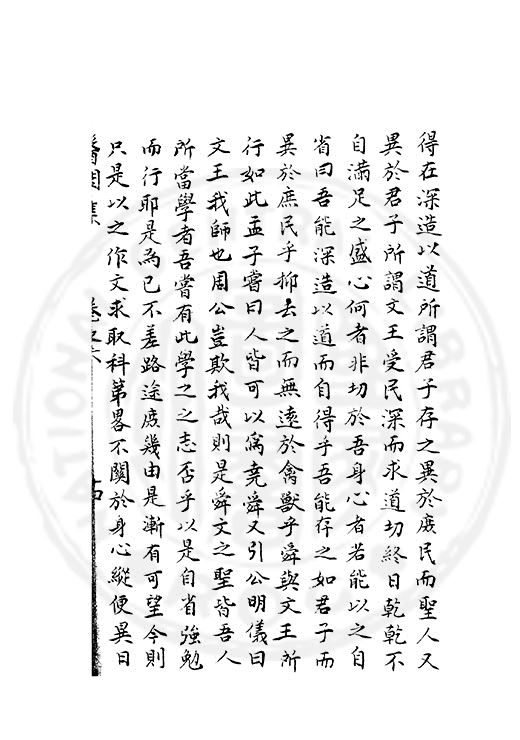 得在深造以道所謂君子存之異於庶民而聖人又
異於君子所謂文王受民深而求道切終日乾乾不
自滿足之盛心何者非切於吾身心者若能以之自
省曰吾能深造以道而自得乎吾能存之如君子而
異於庶民乎抑去之而無遠於禽獸乎舜與文王所
行如此孟子嘗曰人皆可以為堯舜又引公明儀曰
文王我師也周公豈欺我哉則是舜文之聖皆吾人
所當學者吾嘗有此學之之志否乎以是自省強勉
而行耶是為己不差路途庶幾由是漸有可望今則
只是以之作文求取科第畧不關於身心縱便異日
集 卷之六 十四
NATIONAL